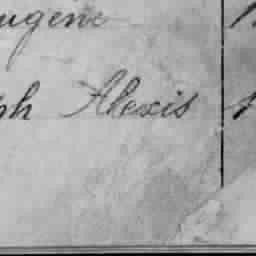 ugene
ph Alexis